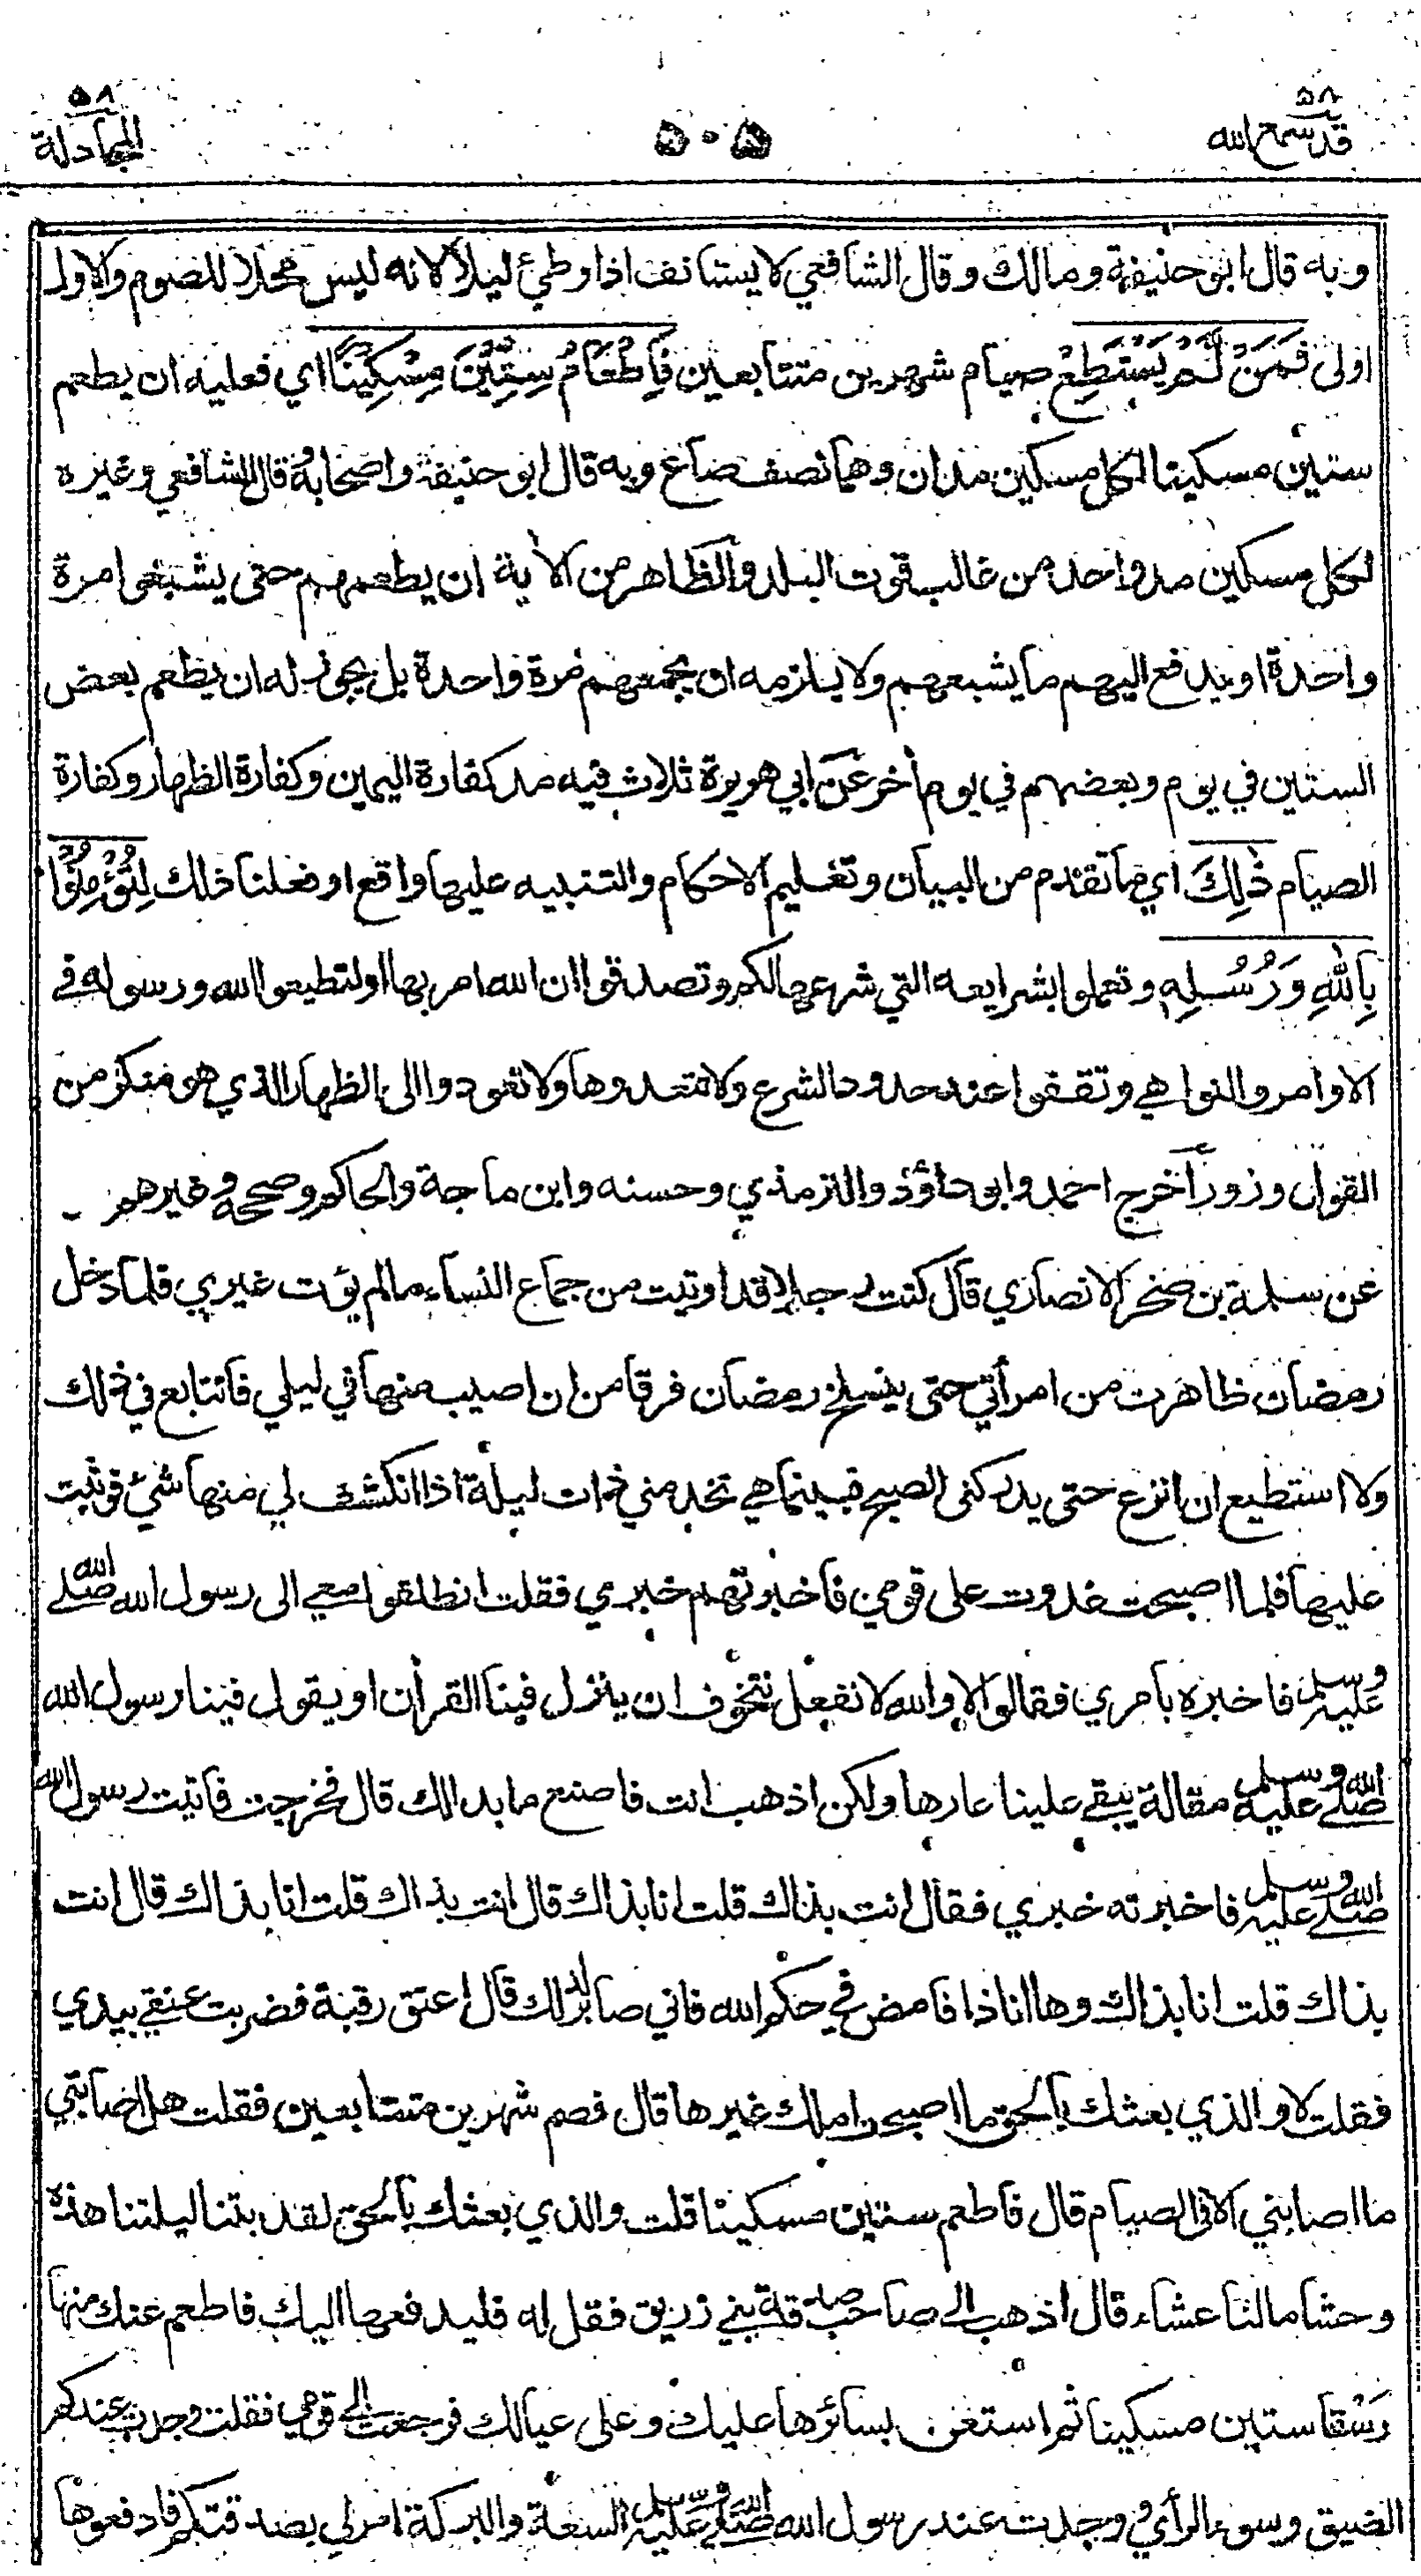 ٥٨ ٥٠٥ ٥٨
قد سمع الله المجادلة
وبه قال ابو حنيفة ومالك وقال الشافعي لا يستانف اذا وطئ ليلا لانه ليس محلا للصوم والاول
اولى فَمَنْ لَّمْ يَسْتَطِعْ صيام شهرين متتابعين فَاِطْعَامُ سِتِّيْنَ مِسْكِيْنًا اي فعليه ان يطعم
ستين مسكينا لكل مسكين مدان وهما نصف صاع وبه قال ابو حنيفة واصحابه وقال الشافعي وغيره
لكل مسكين مد واحد من غالب قوت البلد والظاهر من الأية ان يطعمهم حتى يشبعوا مرة
واحدة او يدفع اليهم ما يشبعهم ولا يلزمه ان يجمعهم مرة واحدة بل يجوز له ان يطعم بعض
الستين في يوم وبعضهم في يوم أخر عن ابي هريرة ثلاث فيه مد كفارة اليمين وكفارة الظهار وكفارة
الصيام ذٰلِكَ اي ما تقدم من البيان وتعليم الاحكام والتنبيه عليها واقع او فعلنا ذلك لِتُؤْمِنُوْا
بِاللّٰهِ وَرَسُوْلِهٖ وتعملوا بشرايعه التي شرعها لكم وتصدقوا ان الله امر بها او لتطيعوا الله ورسوله في
الاوامر والنواهي وتقفوا عند حدود الشرع ولا تتعدوها ولا تعودوا الى الظهار الذي هو منكر من
القول وزور أخرج احمد وابو داؤد والترمذي وحسنه وابن ماجة والحاكم وصححه وغيرهم -
عن سلمة بن صخر الانصاري قال كنت رجلا قد اوتيت من جماع النساء مالم يؤت غيري فلما دخل
رمضان ظاهرت من امرأتي حتى ينسلخ رمضان فرقا من ان اصيب منها في ليلي فاتتابع في ذلك
ولا استطيع ان انزع حتى يدركني الصبح فبينما هي تخدمني ذات ليلة اذا انكشف لي منها شيء فوثبت
عليها فلما اصبحت غدوت على قومي فاخبرتهم خبري فقلت انطلقوا معي الى رسول الله صلى الله
عليه وسلم فاخبره بامري فقالوا لا والله لا نفعل نتخوف ان ينزل فينا القرأن او يقول فينا رسول الله
صلى الله عليه وسلم مقالة يبقى علينا عارها ولكن اذهب انت فاصنع ما بدا لك قال فخرجت فاتيت رسول الله
صلى الله عليه وسلم فاخبرته خبري فقال انت بذاك قلت انا بذاك قال انت بذاك قلت انا بذاك قال انت
بذاك قلت انا بذاك وها انا ذا فامض في حكم الله فاني صابر لذلك قال اعتق رقبة فضربت عنقي بيدي
فقلت لا والذي بعثك بالحق ما اصبحت املك غيرها قال فصم شهرين متتابعين فقلت هل اصابني
ما اصابني الا في الصيام قال فاطعم ستين مسكينا قلت والذي بعثك بالحق لقد بتنا ليلتنا هذه
وحشا ما لنا عشاء قال اذهب الى صاحب صدقة بني زريق فقل له فليدفعها اليك فاطعم عنك منها
وسقا ستين مسكينا ثم استعن بسائرها عليك وعلى عيالك فرجعت الى قومي فقلت وجدت عندكم
الضيق وسوء الرأي ووجدت عند رسول الله صلى الله عليه وسلم السعة والبركة امر لي بصدقتكم فادفعوها